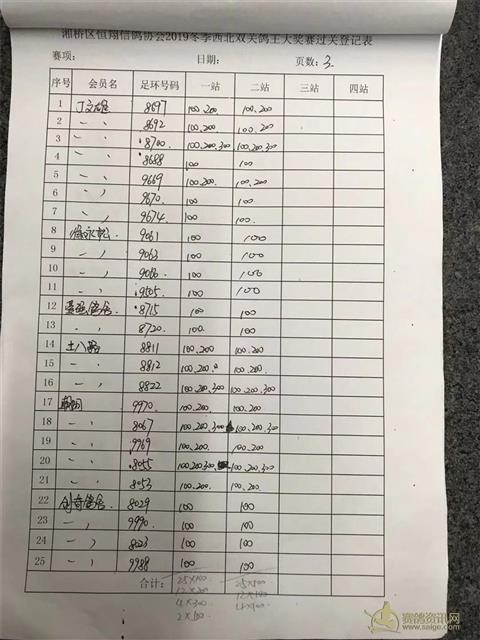 湘桥区恒翔信鸽协会2019冬季西北双关鸽王大奖赛过关登记表
赛项: 日期: 页数: 3
序号 会员名 足环号码 一站 二站 三站 四站
1 丁文雄 8697 100.200 100.200
2 〃 8692 100.200 100.200
3 〃 8700 100.200.300 100.200.300
4 〃 8688 100 100
5 〃 9669 100.200 100.200
6 〃 9670 100 100
7 〃 9674 100 100
8 9061 100 100
9 〃 9063 100 100
10 〃 9066 100 100
11 〃 9505 100 100
12 8715 100 100
13 〃 8720 100 100
14 土八路 8811 100.200 100.200
15 〃 8812 100.200 100.200
16 〃 8822 100.200.300 100.200.300
17 9970 100.200 100.200
18 〃 8067 100.200.300 100.200.300
19 〃 9969 100.200 100.200
20 〃 8055 100.200.300 100.200.300
21 〃 8053 100.200 100.200
22 创奇鸽舍 8029 100 100
23 〃 9990 100 100
24 〃 8023 100 100
25 〃 9988 100 100
合计: 25×100 25×100
12×200
4×300
2×100
赛鸽资讯网
www.saige.com